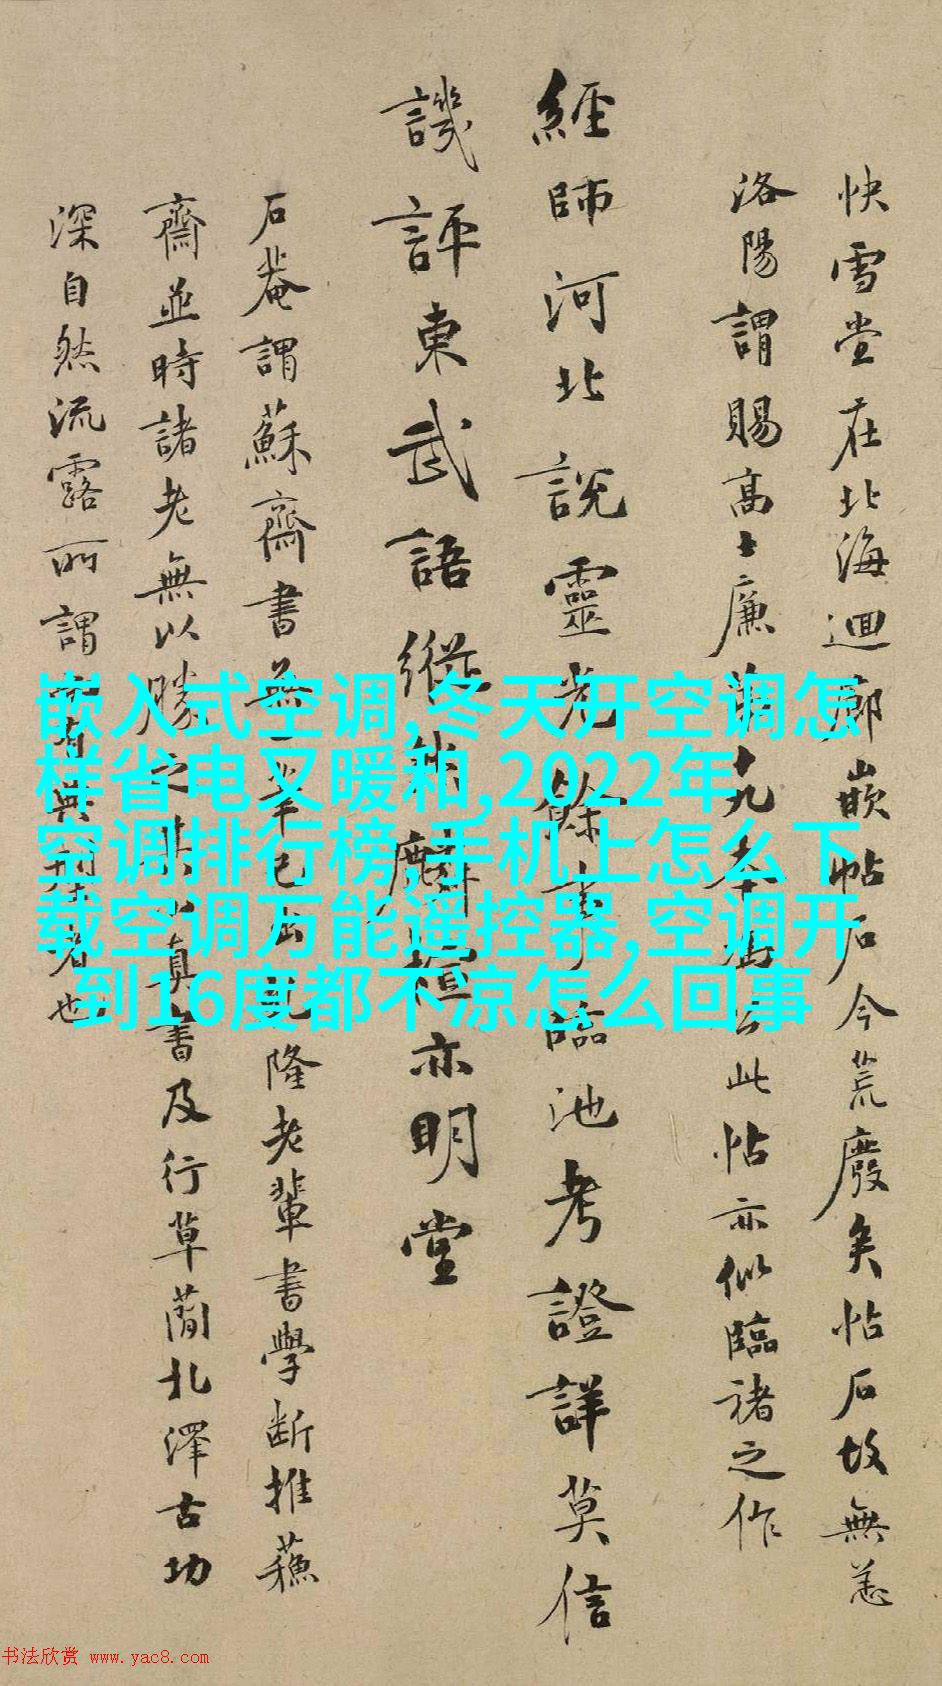 快雪堂在北海迴廊嵌帖石今荒廢矣帖石故無恙
洛陽謂賜高士廉十九此帖亦似臨褚之作
經師河北說靈光餘事臨池考證詳莫信
譏評東武語縱麟亦明堂
石菴謂蘇齋書無一筆己出隆老輩書學斷推蘇
齋並時諸老無以勝之真書及行草蘭北澤古功
深自然流露所謂有典型者也
嵌入式空调,冬天开空调怎
样省电又暖和,2022年
空调排行榜,手机上怎么下
载空调万能遥控器,空调开
到16度都不凉怎么回事
书法欣赏 www.yac8.com